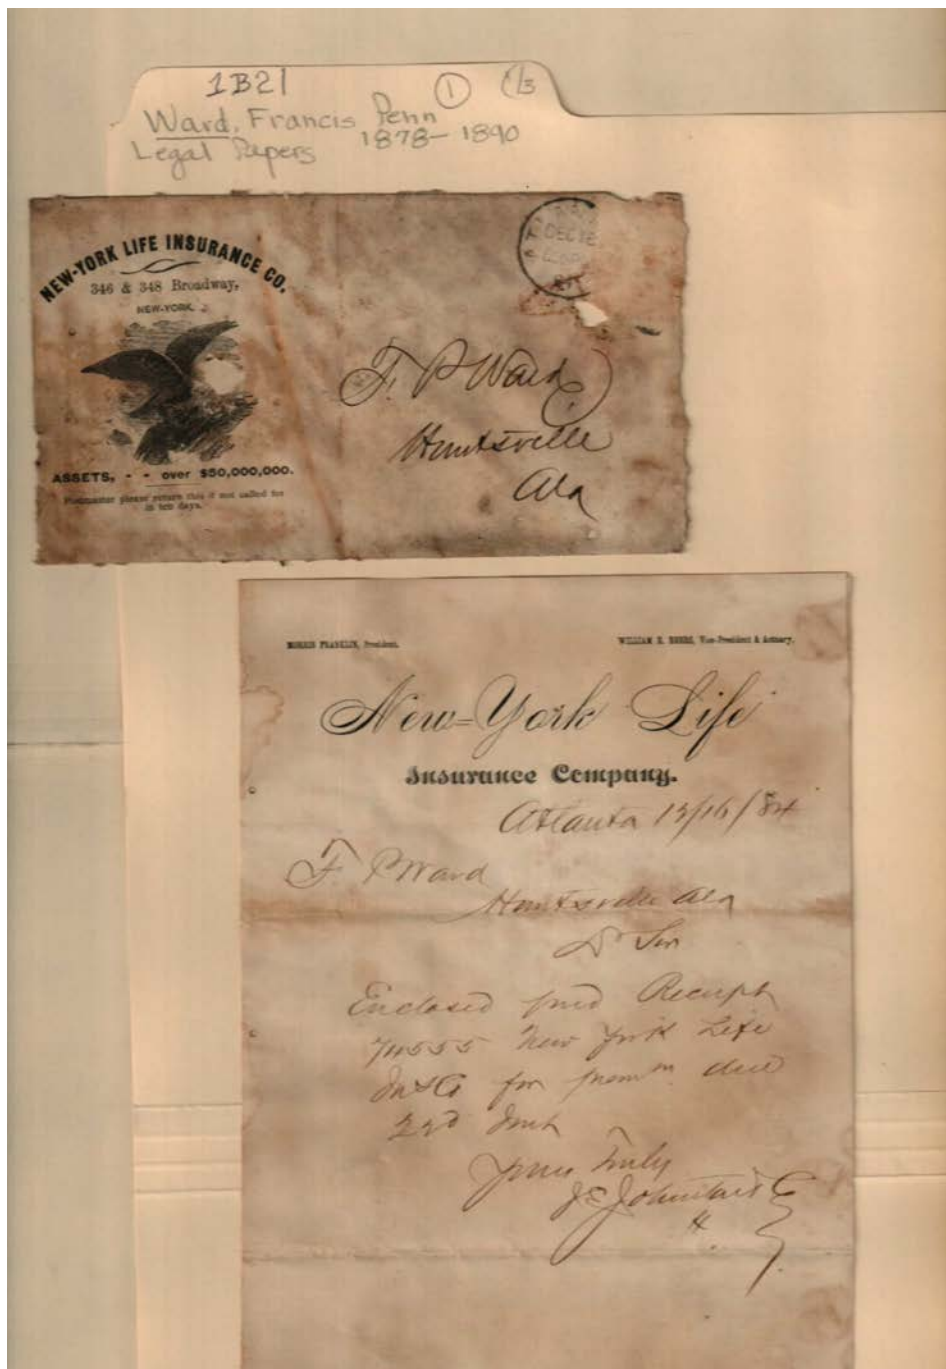 1B21 1 1/3
Ward, Francis Penn
Legal Papers 1878-1890
NEW-YORK LIFE INSURANCE CO.
346 & 348 Broadway,
NEW-YORK.
DEC 16
F. P Ward
Huntsville
Ala
ASSETS, - - over $50,000,000.
Postmaster please return this if not called for
in ten days.
MORRIS FRANKLIN, President. WILLIAM H. BEERS, Vice-President & Actuary.
New=York Life
Insurance Company.
Atlanta 12/16/84
F. P Ward
Huntsville Ala
Dr Sir
Enclosed find Receipt
New York Life
Ins Co for prem m due
22d Inst
Yours Truly